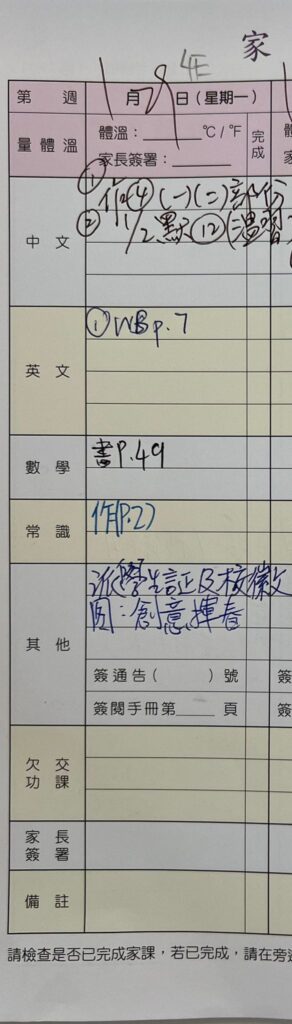 4E 家
第 週 1月29日(星期一)
量體溫 體溫: ℃/℉ 完成
家長簽署:
中文 ①作④(一)(二)
② 1/2默⑫(溫習
英文 ①WB p.7
數學 書P.49
常識 作P.27
其他 派學生証及校徽
圖:創意揮春
簽通告( )號
簽閱手冊第 頁
欠交功課
家長簽署
備註
請檢查是否已完成家課,若已完成,請在旁